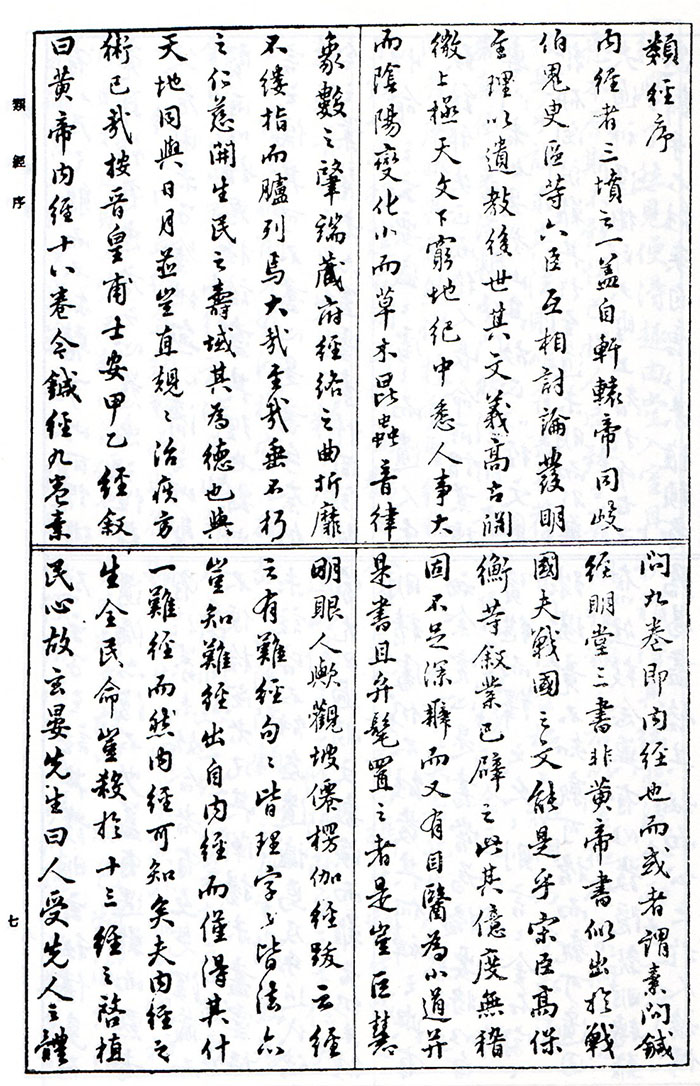 類經序
內經者三墳之一蓋自軒轅帝同岐
伯鬼臾區等六臣互相討論發明
至理以遺教後世其文義高古淵
微上極天文下窮地紀中悉人事大
而陰陽變化小而草木昆蟲音律
象數之肇端藏府經絡之曲折靡
不縷指而臚列焉大哉至哉垂不朽
之仁慈開生民之壽域其為德也與
天地同與日月並豈直規〻治疾方
術已哉按晉皇甫士安甲乙經敘
曰黃帝內經十八卷今鍼經九卷素
問九卷即內經也而或者謂素問鍼
經明堂三書非黃帝書似出於戰
國夫戰國之文能是乎宋臣高保
衡等敘業已辟之此其億度無稽
固不足深辨而又有目醫為小道并
是書且弁髦置之者是豈巨慧
明眼人歟觀坡僊楞伽經跋云經
之有難經句〻皆理字〻皆法亦
豈知難經出自內經而僅得其什
一難經而然內經可知矣夫內經之
生全民命豈殺於十三經之啓植
民心故玄晏先生曰人受先人之體
類經序
七